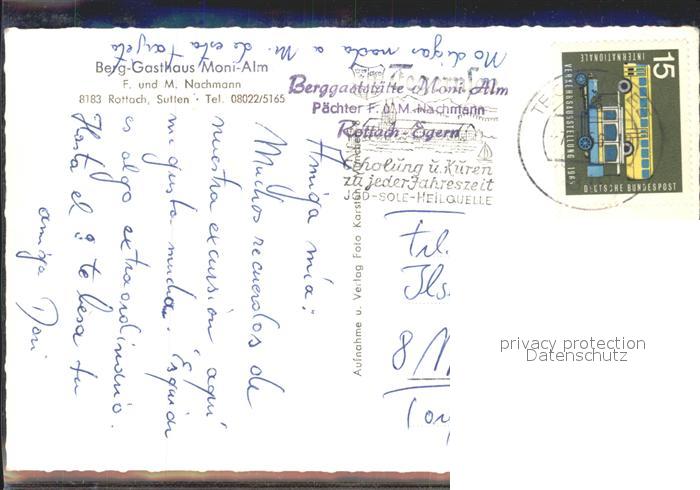 No digas nada a M. de esta tarjeta
Berg-Gasthaus Moni-Alm
F. und M. Nachmann
8183 Rottach, Sutten · Tel. 08022/5165
Berggaststätte Moni Alm
Pächter F. u. M. Nachmann
Rottach-Egern
Tegernsee
Erholung u. Kuren
zu jeder Jahreszeit
JOD-SOLE-HEILQUELLE
Amiga mía:
Muchos recuerdos de
nuestra excursión aquí
me gusta mucho. Esquiar
es algo extraordinario.
Hasta el te besa tu
amiga Dori
Aufnahme u. Verlag Foto Karsten
Frl.
Ils
8 M
15
INTERNATIONALE
VERKEHRSAUSSTELLUNG 1965
DEUTSCHE BUNDESPOST
privacy protection
Datenschutz